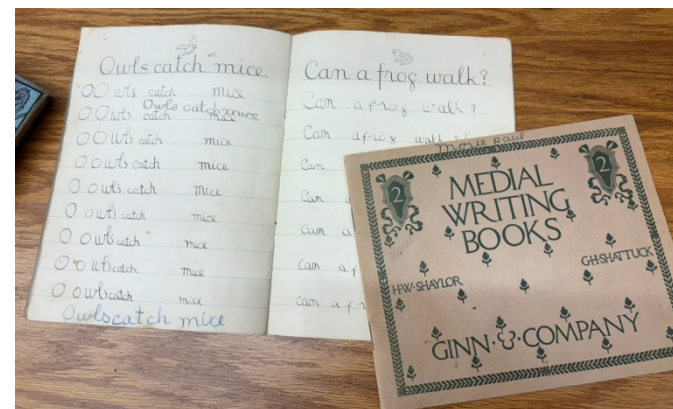 Owls catch mice.
O O wls catch mice
O O wls catch mice
Owls catch mice
O O wls catch mice
O O wls catch mice
O O wls catch mice
O O wls catch mice
O O wls catch mice
O O wls catch mice
O O wls catch mice
Owls catch mice
Can a frog walk?
Can a frog walk?
Can a frog walk
Can
Can a
Can a
Can a f
Can a fr
Marie Paul
2
2
MEDIAL
WRITING
BOOKS
H·W·SHAYLOR
G·H·SHATTUCK
GINN·&·COMPANY